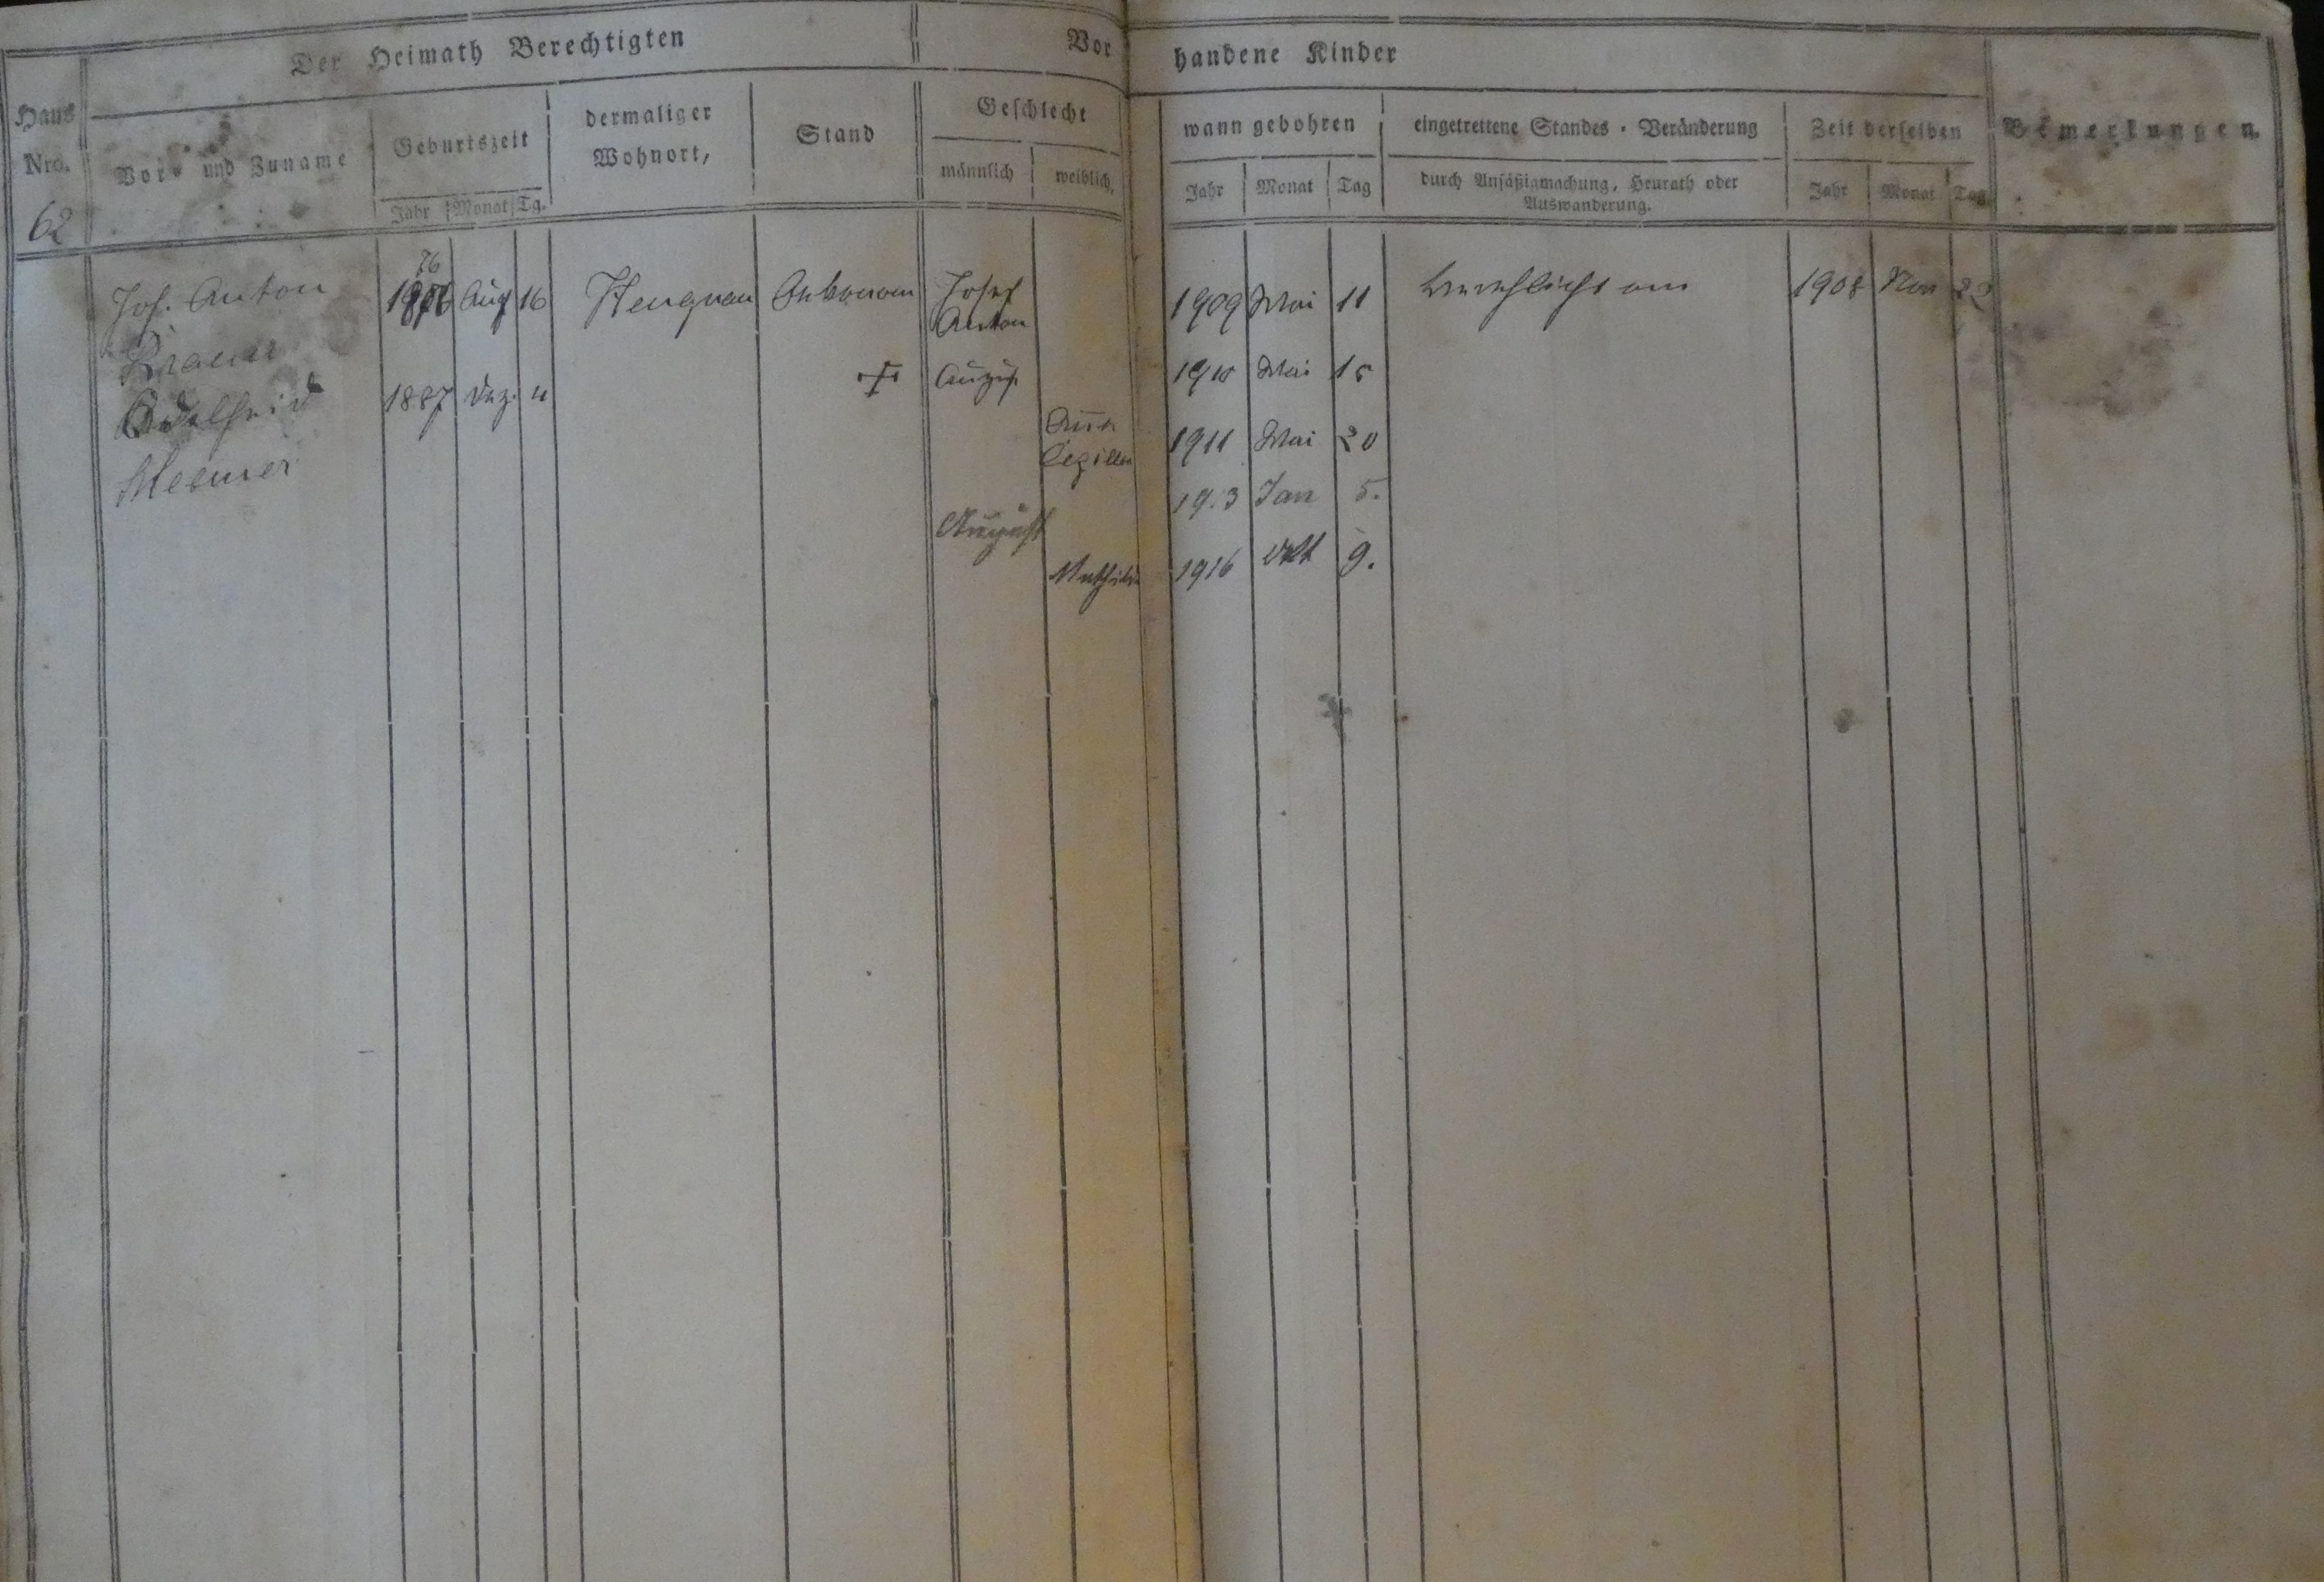 Der Heimath Berechtigten
Vorhandene Kinder
Haus
Nro.
62
Vor- und Zuname
Geburtszeit
Jahr Monat Tg.
dermaliger
Wohnort,
Stand
Geschlecht
männlich weiblich,
wann gebohren
Jahr Monat Tag
eingetrettene Standes-Veränderung
durch Ansäßigmachung, Heurath oder
Auswanderung.
Zeit derselben
Jahr Monat Tag
Bemerkungen.
76
Jos. Anton 1876 Aug 16 Hengnau Ökonom Josef 1909 Mai 11 verehlicht am 1908 Nov
Anton
August 1910 Mai 15
Adelheid 1887 Dez. 4
Anna 1911 Mai 20
Mesmer
1913 Jan 5.
August
Mathilde 1916 Okt 9.